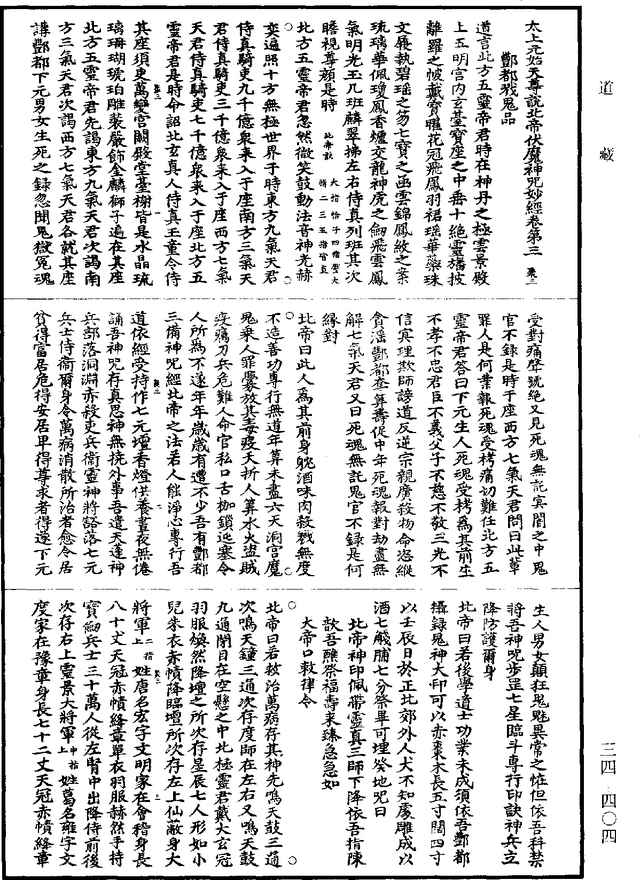 道藏
三四 四〇四
太上元始天尊說北帝伏魔神呪妙經卷第三
酆都戮鬼品
道言此方五靈帝君時在神丹之極雲景殿
上五明宮內玄臺寶座之中垂十絕靈旛披
離羅之帔戴寶曜花冠飛鳳羽裙瑤華藥珠
文履執碧瑤之笏七寶之函雲錦鳳紋之案
琉璃華佩瓊鳳香爐交龍神虎之劍飛雲鳳
氣明光玉几班麟翠拂左右侍真列班其次
瞻視尊顏是時
北方五靈帝君忽然微笑鼓動法音神光赫
奕遍照十方無極世界于時東方九氣天君
侍真騎吏九千億衆來入于座南方三氣天
君侍真騎吏三千億衆來入于座西方七氣
天君侍真騎吏七千億衆來入于座北方五
靈帝君是時命詔北玄真人侍真玉童令侍
其座須臾萬變宮闕殿堂臺榭皆是水晶琉
璃珊瑚琥珀雕裝嚴飾金麟獅子遍在其座
北方五靈帝君先謁東方九氣天君次謁南
方三氣天君次謁西方七氣天君各就其座
講酆都下元男女生死之錄忽聞鬼獄冤魂
受對痛聲號絕又見死魂無託冥闇之中鬼
官不錄是時于座西方七氣天君問曰此輩
罪人是何業報死魂受栲痛切難任北方五
靈帝君答曰下元生人死魂受栲爲其前生
不孝不忠君臣不義父子不慈不敬三光不
信真理欺師謗道反逆宗親屠殺物命恣縱
貪淫酆都奎筭壽促中年死魂報對劫盡無
解七氣天君又曰死魂無託鬼官不錄是何
緣對
北帝曰此人爲其前身躭酒味肉殺戮無度
不造善功專行無道年筭未盡六天洞宮魔
鬼乘人罪釁放其毒疫夭折人筭水火盜賊
疫癘刀兵危難人命官私口舌枷鎖迍蹇令
人所爲不遂年年歲歲有遭不少吾有酆都
三備神呪經北帝之法若人能淨心專行吾
道依經受持作七元壇香燈供養晝夜無倦
誦吾神呪存真思神無撓外事吾遣天蓬神
兵部落洞淵赤殺吏兵衞靈神將䝿落七元
兵士侍衞爾身令萬病消散所治者愈令居
貧得富居危得安居卑得尊求者得遂下元
生人男女顛狂鬼魅異常之怪但依吾科禁
將吾神呪步罡七星臨斗專行印訣神兵立
降防護爾身
北帝曰若後學道士功業未成須依吾酆都
攝錄鬼神大印可以赤棗木長五寸闊四寸
以壬辰日於正北郊外人犬不知處雕成以
酒七醆脯七分祭畢可埋癸地呪曰
北帝神印佩帶靈真三師下降依吾指陳
歆吾醮祭福壽來臻急急如
大帝口敕律令
北帝曰若救治萬病存其神先鳴天鼓三通
次鳴天鐘三通次存度師在左右又鳴天鼓
九通閉目在空懸之中北極靈君戴大玄冠
羽服煥然降壇之所次存星辰七人形如小
兒朱衣赤幘降臨壇所次存左上仙敵身大
將軍姓唐名宏字文明家在會稽身長
八十丈天冠赤幘絳章單衣羽服赫然手持
寶劍兵士三十萬人從左腎中出降侍前後
次存右上靈景大將軍姓葛名雍字文
度家在豫章身長七十二丈天冠赤幘絳章